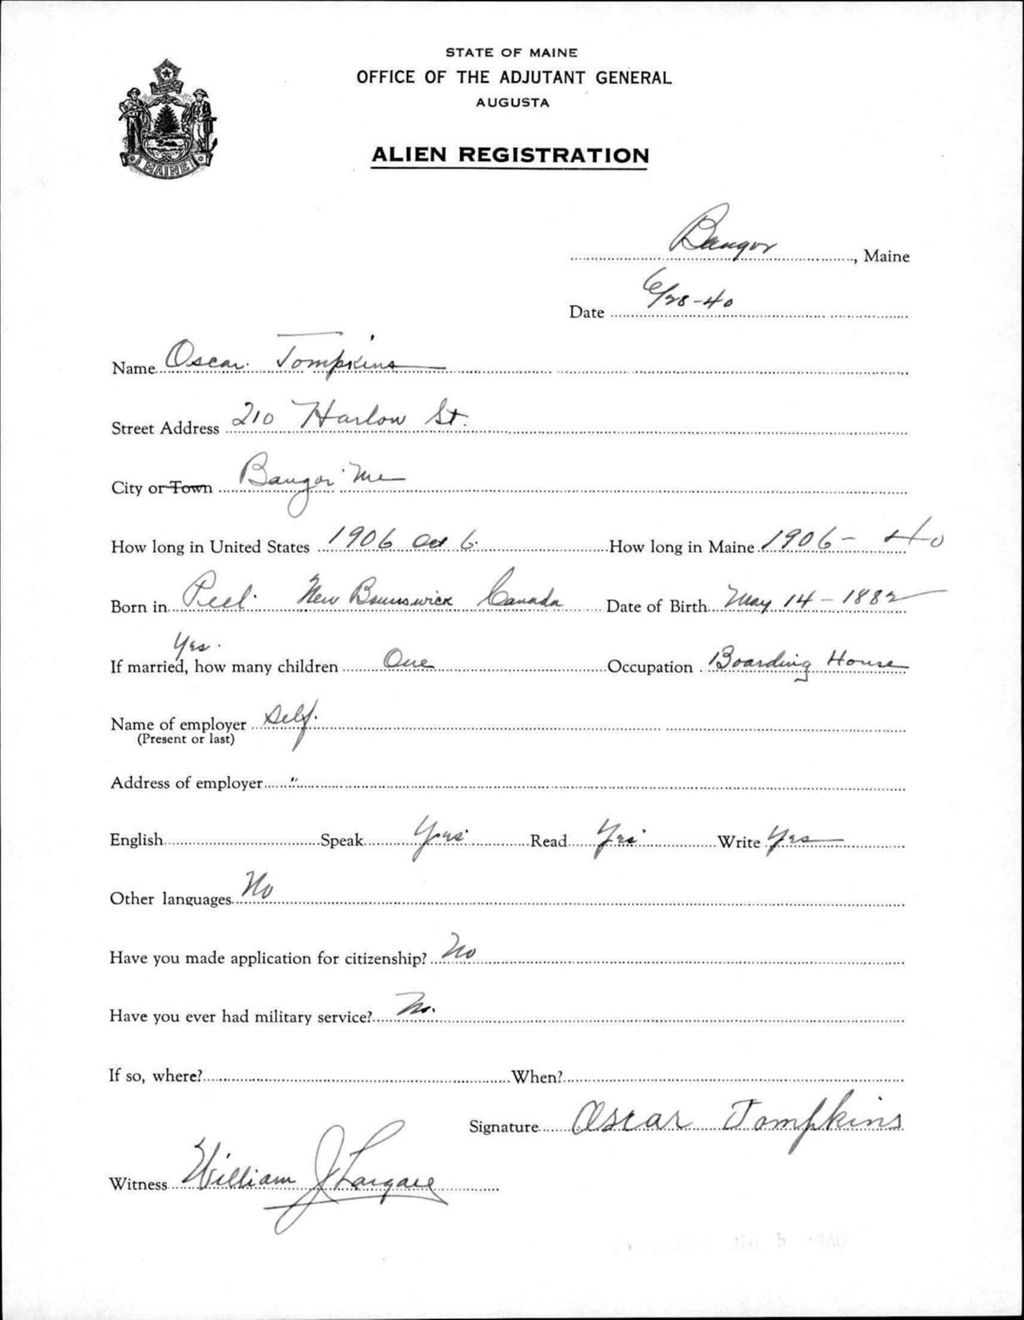 STATE OF MAINE
OFFICE OF THE ADJUTANT GENERAL
AUGUSTA
ALIEN REGISTRATION
MAINE
Bangor, Maine
Date 6/28-40
Name Oscar Tompkins
Street Address 210 Harlow St.
City or Town Bangor Me
How long in United States 1906 Oct 6. How long in Maine 1906-40
Born in Peel. New Brunswick Canada Date of Birth May 14-1882
Yes.
If married, how many children One Occupation Boarding House
Name of employer Self.
(Present or last)
Address of employer "
English Speak Yes. Read Yes. Write Yes
Other languages No
Have you made application for citizenship? No
Have you ever had military service? No.
If so, where? When?
Signature Oscar Tompkins
Witness William J